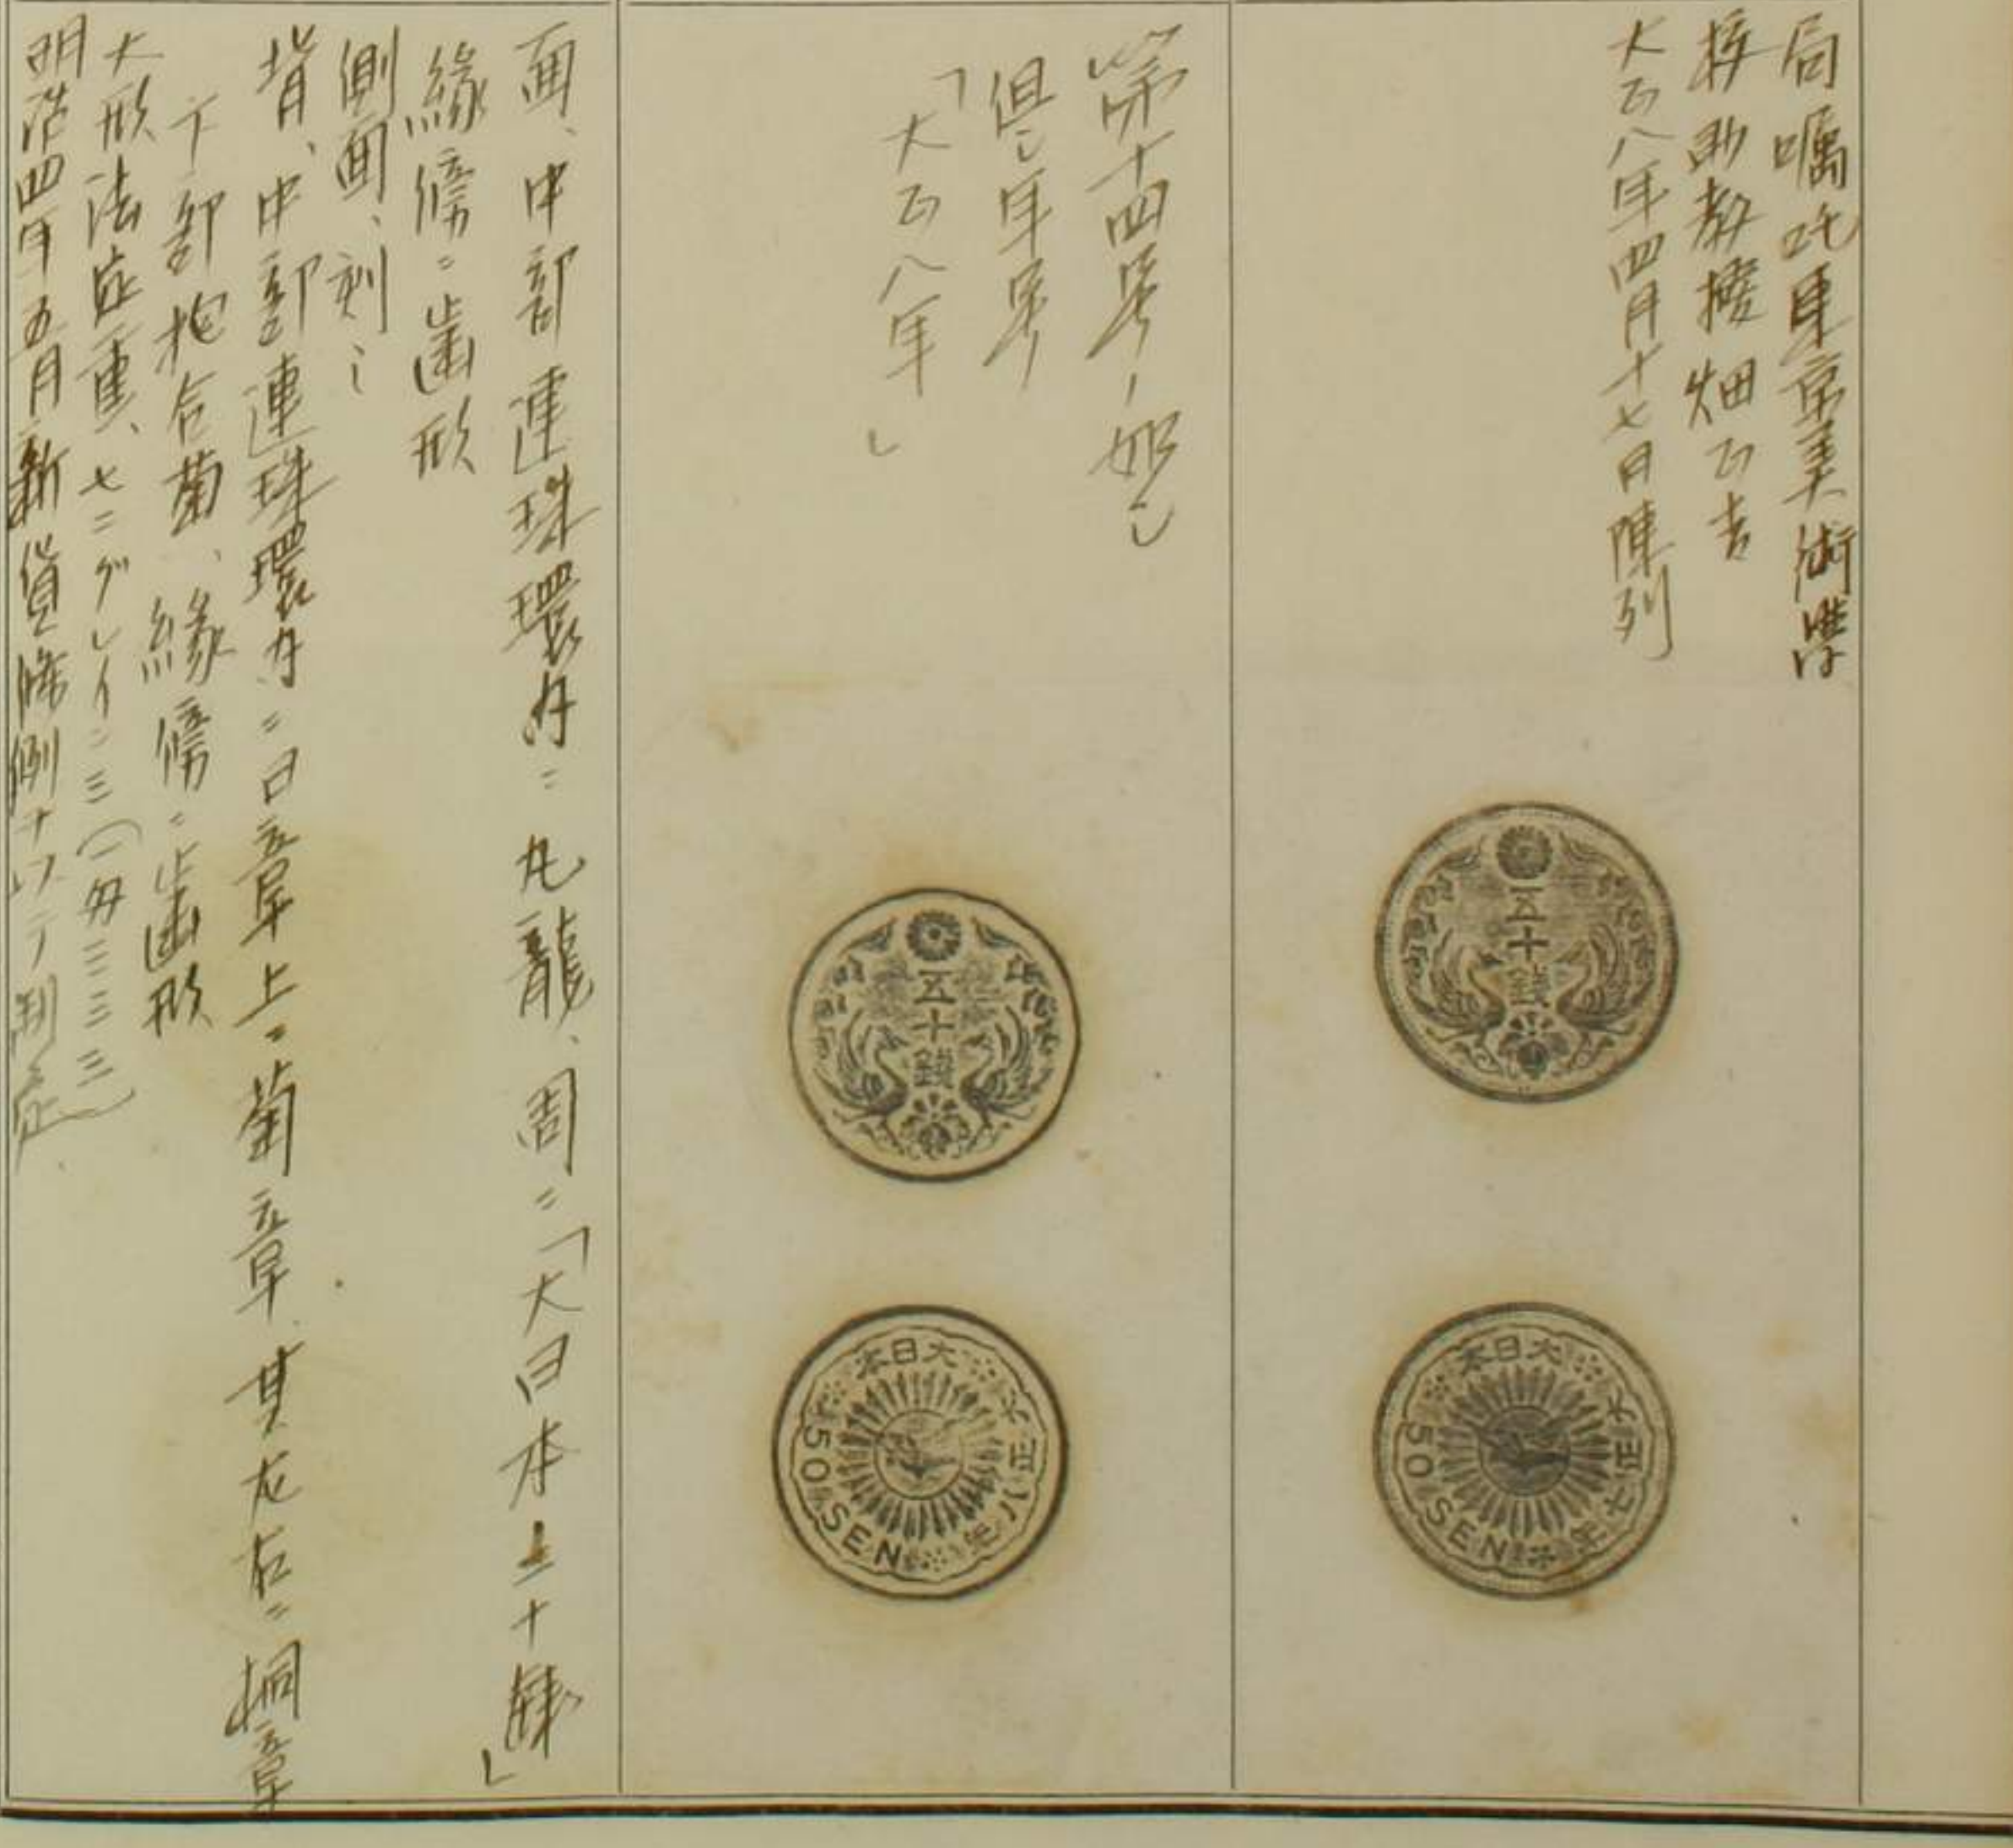 局嘱託東京美術学
校助教授畑正吉
大正八年四月十七日陳列
五十銭
大日本
大正七年
50 SEN
第十四号ノ如シ
但シ年号ノ
「大正八年」
五十銭
大日本
大正八年
50 SEN
面、中部連珠環内ニ丸龍、周ニ「大日本 二十銭」
縁傍ニ歯形
側面、刻シ
背、中部連珠環内ニ日章上ニ菊章、其左右ニ桐章
下部抱合菊、縁傍ニ歯形
大形法定量、七二グレイン三(一匁二三三三)
明治四年五月新貨條例ヲ以テ制定